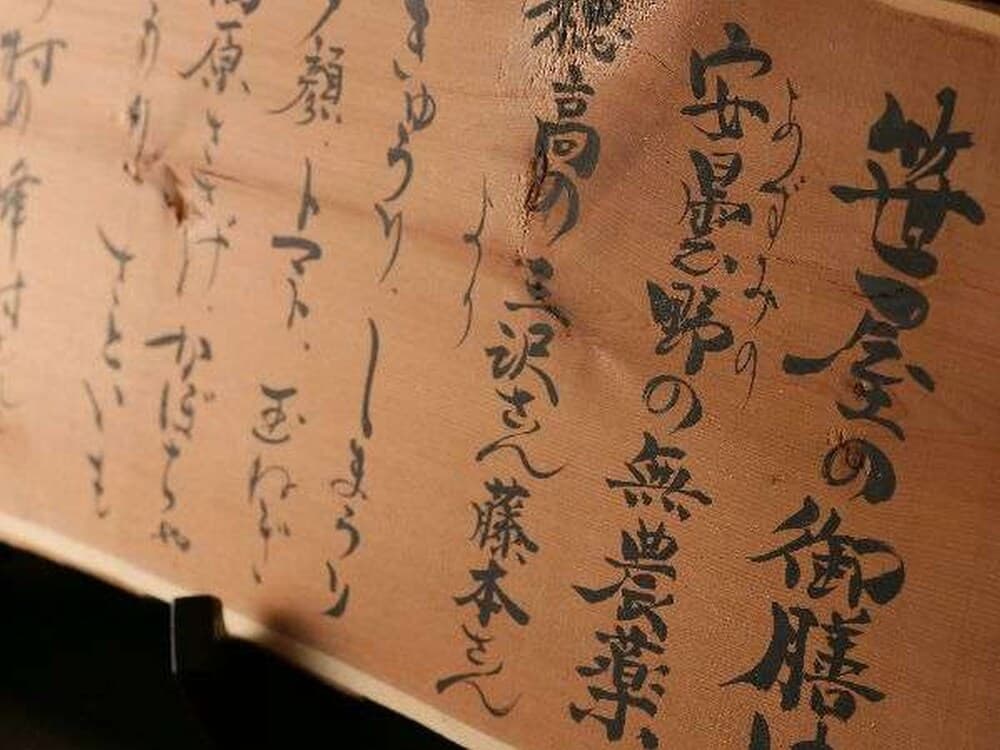 笹屋の御膳は
安曇野の無農薬、
あずみの
穂高の三沢さん藤本さん
より
きゅうり、しまうり
夕顔、トマト、玉ねぎ、
原ささげ、かぼちゃ
さといも